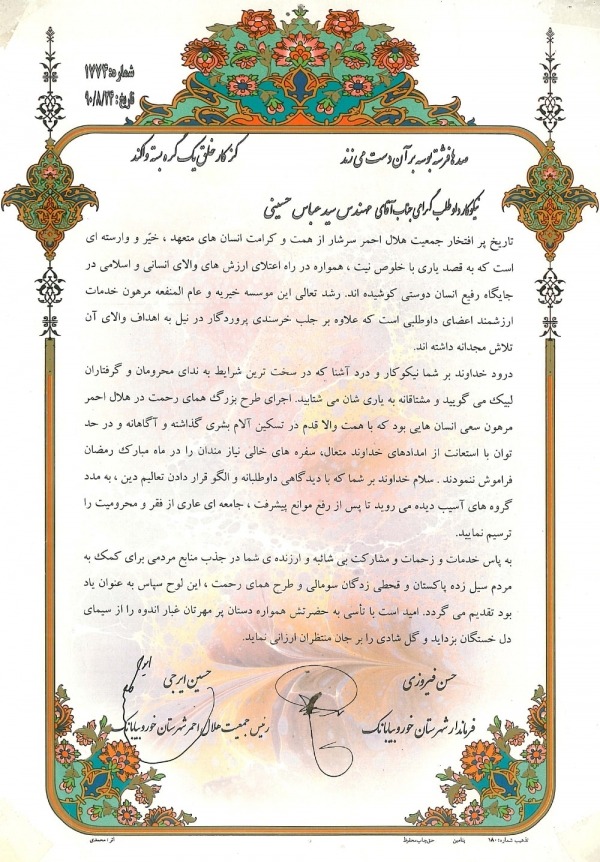 شماره: ۱۷۷۴
تاریخ: ۹۰/۸/۲۴
صدها فرشته بوسه بر آن دست می زند
کز کار خلق یک گره بسته واکند
نیکوکار داوطلب گرامی جناب آقای مهندس سید عباس حسینی
تاریخ پر افتخار جمعیت هلال احمر سرشار از همت و کرامت انسان های متعهد ، خیّر و وارسته ای
است که به قصد یاری با خلوص نیت ، همواره در راه اعتلای ارزش های والای انسانی و اسلامی در
جایگاه رفیع انسان دوستی کوشیده اند. رشد تعالی این موسسه خیریه و عام المنفعه مرهون خدمات
ارزشمند اعضای داوطلبی است که علاوه بر جلب خرسندی پروردگار در نیل به اهداف والای آن
تلاش مجدانه داشته اند.
درود خداوند بر شما نیکوکار و درد آشنا که در سخت ترین شرایط به ندای محرومان و گرفتاران
لبیک می گویید و مشتاقانه به یاری شان می شتابید. اجرای طرح بزرگ همای رحمت در هلال احمر
مرهون سعی انسان هایی بود که با همت والا قدم در تسکین آلام بشری گذاشته و آگاهانه و در حد
توان با استعانت از امدادهای خداوند متعال، سفره های خالی نیاز مندان را در ماه مبارک رمضان
فراموش ننمودند . سلام خداوند بر شما که با دیدگاهی داوطلبانه و الگو قرار دادن تعالیم دین ، به مدد
گروه های آسیب دیده می روید تا پس از رفع موانع پیشرفت ، جامعه ای عاری از فقر و محرومیت را
ترسیم نمایید.
به پاس خدمات و زحمات و مشارکت بی شائبه و ارزنده ی شما در جذب منابع مردمی برای کمک به
مردم سیل زده پاکستان و قحطی زدگان سومالی و طرح همای رحمت ، این لوح سپاس به عنوان یاد
بود تقدیم می گردد. امید است با تأسی به حضرتش همواره دستان پر مهرتان غبار اندوه را از سیمای
دل خستگان بزداید و گل شادی را بر جان منتظران ارزانی نماید.
حسن فیروزی
فرماندار شهرستان خور و بیابانک
حسین ایرجی
رئیس جمعیت هلال احمر شهرستان خور و بیابانک
تذهیب شماره: ۱۸۰
بنامین
حق چاپ محفوظ
اثر: محمدی